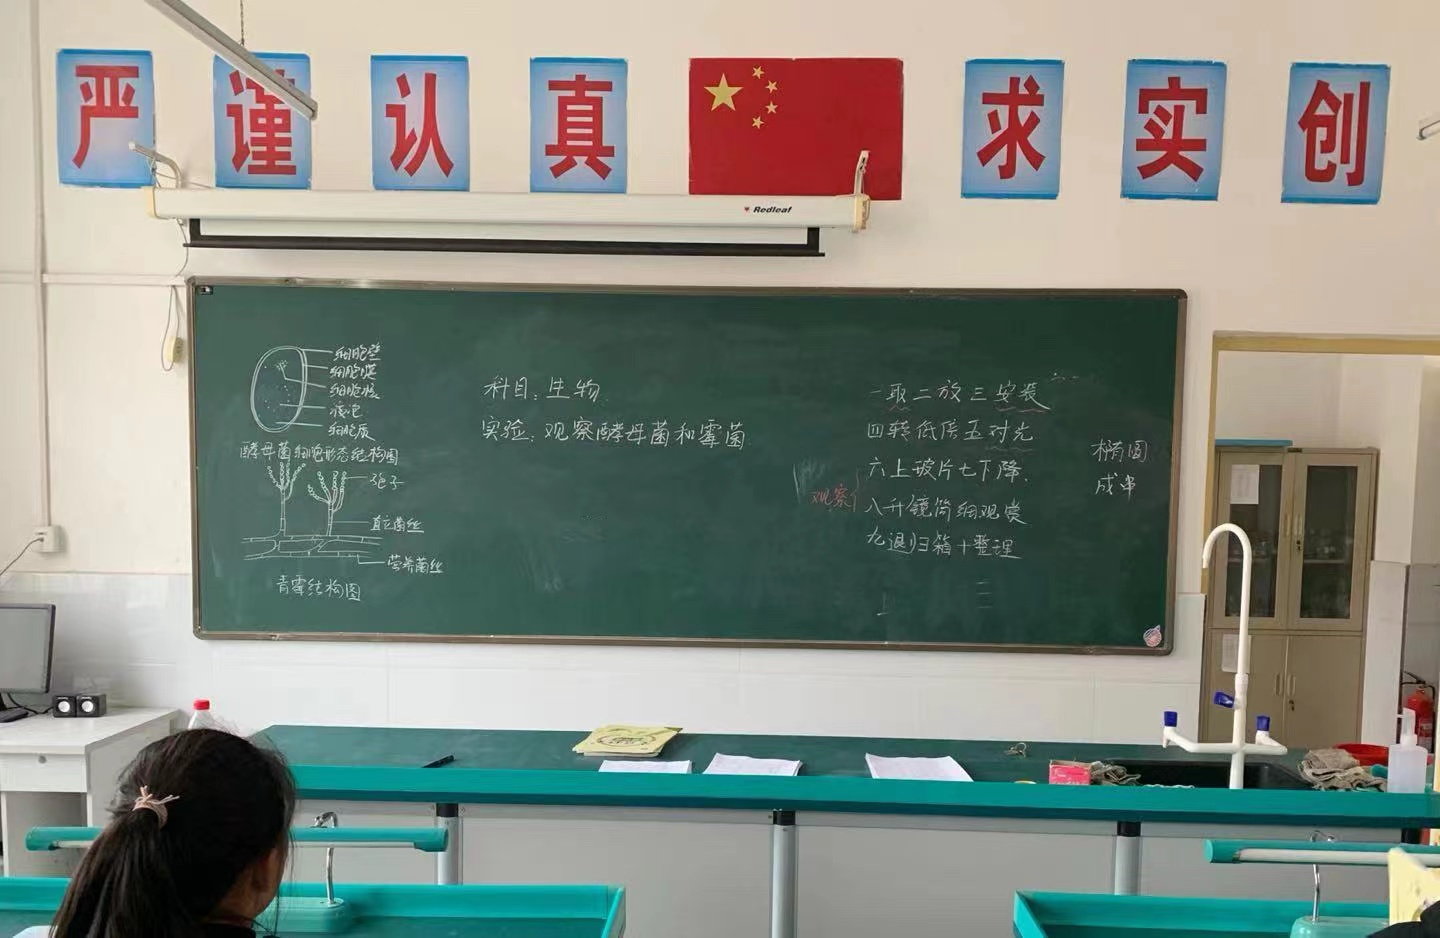 严 谨 认 真 求 实 创
Redleaf
细胞壁
细胞膜
细胞核
液泡
细胞质
酵母菌细胞形态结构图
孢子
直立菌丝
营养菌丝
青霉结构图
科目：生物
实验：观察酵母菌和霉菌
一取二放三安装
四转低倍五对光
六上玻片七下降
观察
八升镜筒细观赏
九退归箱十整理
椭圆
成串